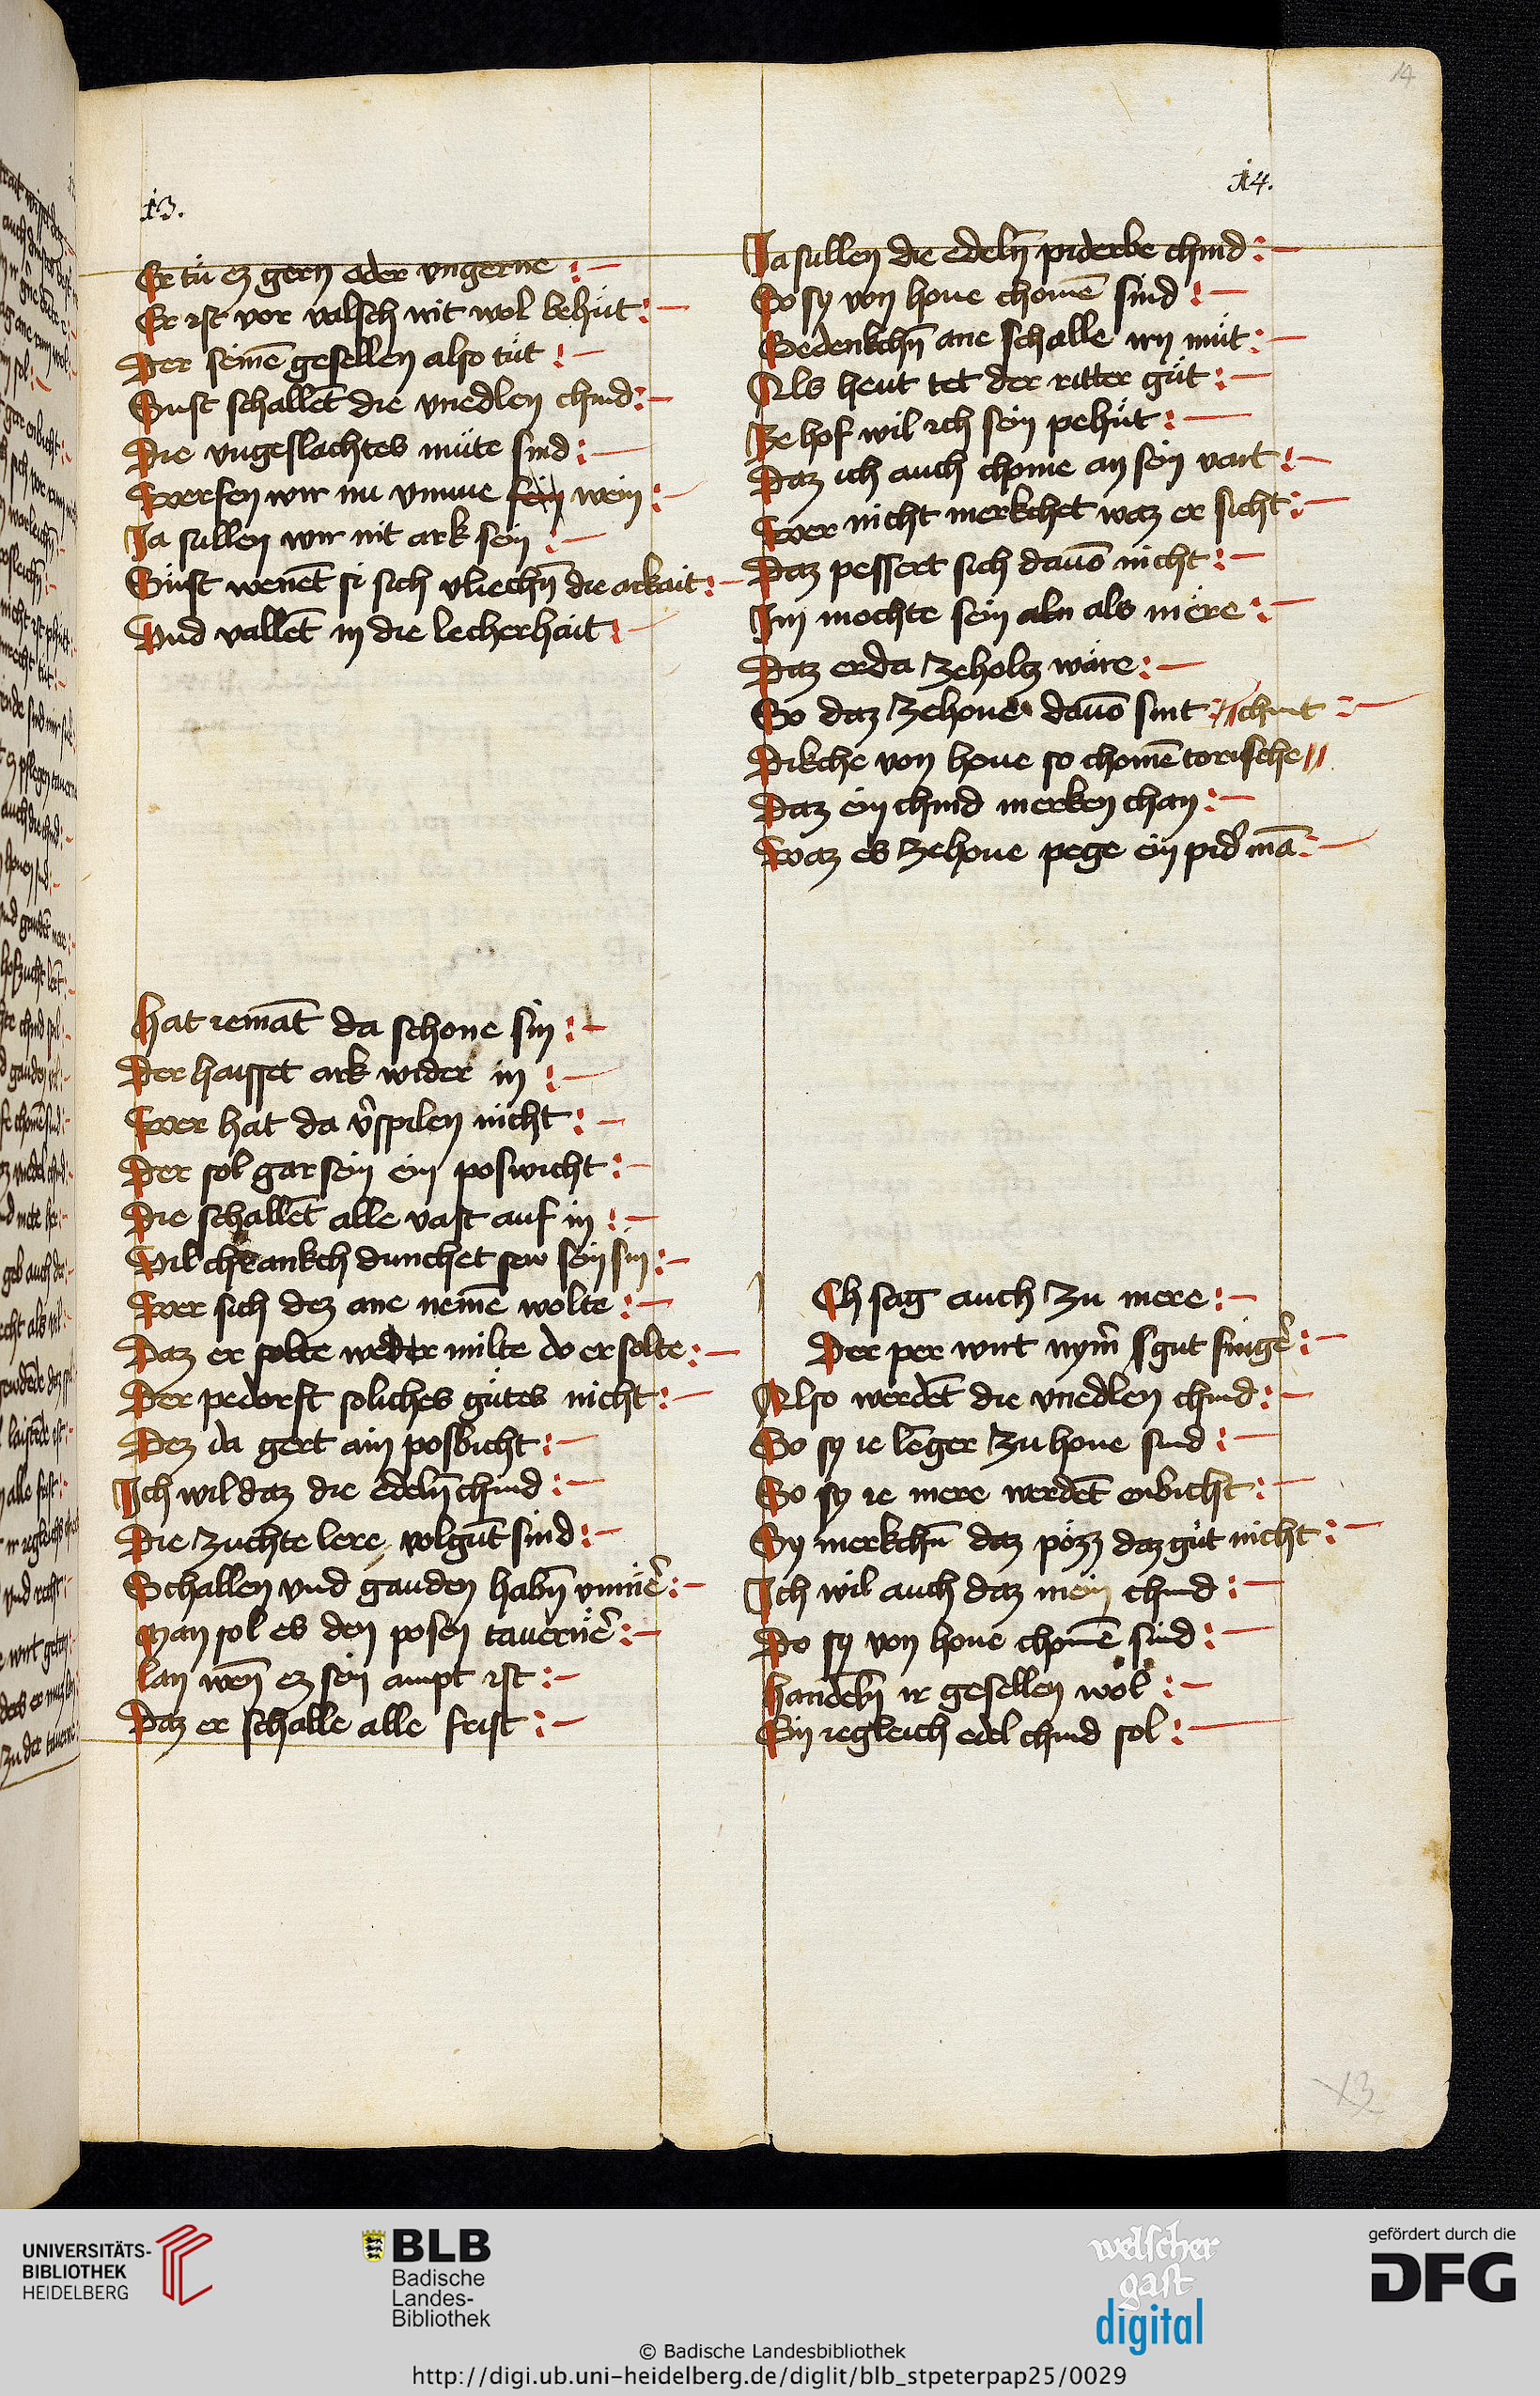 14
13.
Er tu̇ ez gern oder vngerne :-
Er ist vor valsch nit wol behu̇t :-
Der seinē gesellen also tu̇t :-
Sust schallēt die vnedlen chind :-
Die vngeslachtes mu̇te sind :-
Werfen wir nu vmme wein :-
Ja sullen wir nit ark sein :-
Su̇st wenēt si sich vliechn̄ die arkait :-
Vnd vallēt in die lecherhait :-
Hat iemāt da schone sin :-
Der haisset ark wider in :-
Wer hat da v̾spilen nicht :-
Der sol gar sein ein poswicht :-
Die schallēt alle vast auf in :-
Vil chrankch dunchet sew sein sin :-
Wer sich dez ane nemē wolte :-
Daz er solte weder milte do er solte :-
Der pedorft soliches gu̇tes nicht :-
Dez da gert ain posbicht :-
Ich wil daz die edeln̄ chind :-
Die zuchte lere volgūt sind :-
Schallen vnd gauden habn̄ vnmē̾ :-
Man sol es den posen tavernē̾ :-
Lan wēn ez sein ampt ist :-
Daz er schalle alle frist :-
14.
Ja sullen die edeln̄ piderbe chind :-
So sy von houe chomē sind :-
Gedenkchn̄ ane schalle irn mu̇t :-
Als heut tet der ritter gu̇t :-
Ze hof wil ich sein pehu̇t :-
Daz ich auch chome an sein vart :-
Wer nicht merkchet waz er sicht :-
Daz pessert sich dauō nicht :-
Im mochte sein aln als mere :-
Daz er da ze holtz wäre :-
So daz ze houe dauō sint // chint :-
Dikche von houe so chomē torische //
Daz ein chind merken chan :-
Waz es ze houe pege ein pid̾ mā :-
Ch sag auch zu mere :-
Der per wirt nym̾ s gut singē̾ :-
Also werdēt die vnedlen chind :-
So sy ie lēger zu houe sind :-
So sy ie mere werdēt enbicht :-
Sy merkchn̄ daz pözz daz gu̇t nicht :-
Ich wil auch daz mein chind :-
Do sy von houe chomē sind :-
Handeln̄ ir gesellen wol :-
Ein iegleich edel chind sol :-
13
UNIVERSITÄTS-
BIBLIOTHEK
HEIDELBERG
BLB
Badische
Landes-
Bibliothek
welscher
gast
digital
gefördert durch die
DFG
© Badische Landesbibliothek
http://digi.ub.uni-heidelberg.de/diglit/blb_stpeterpap25/0029